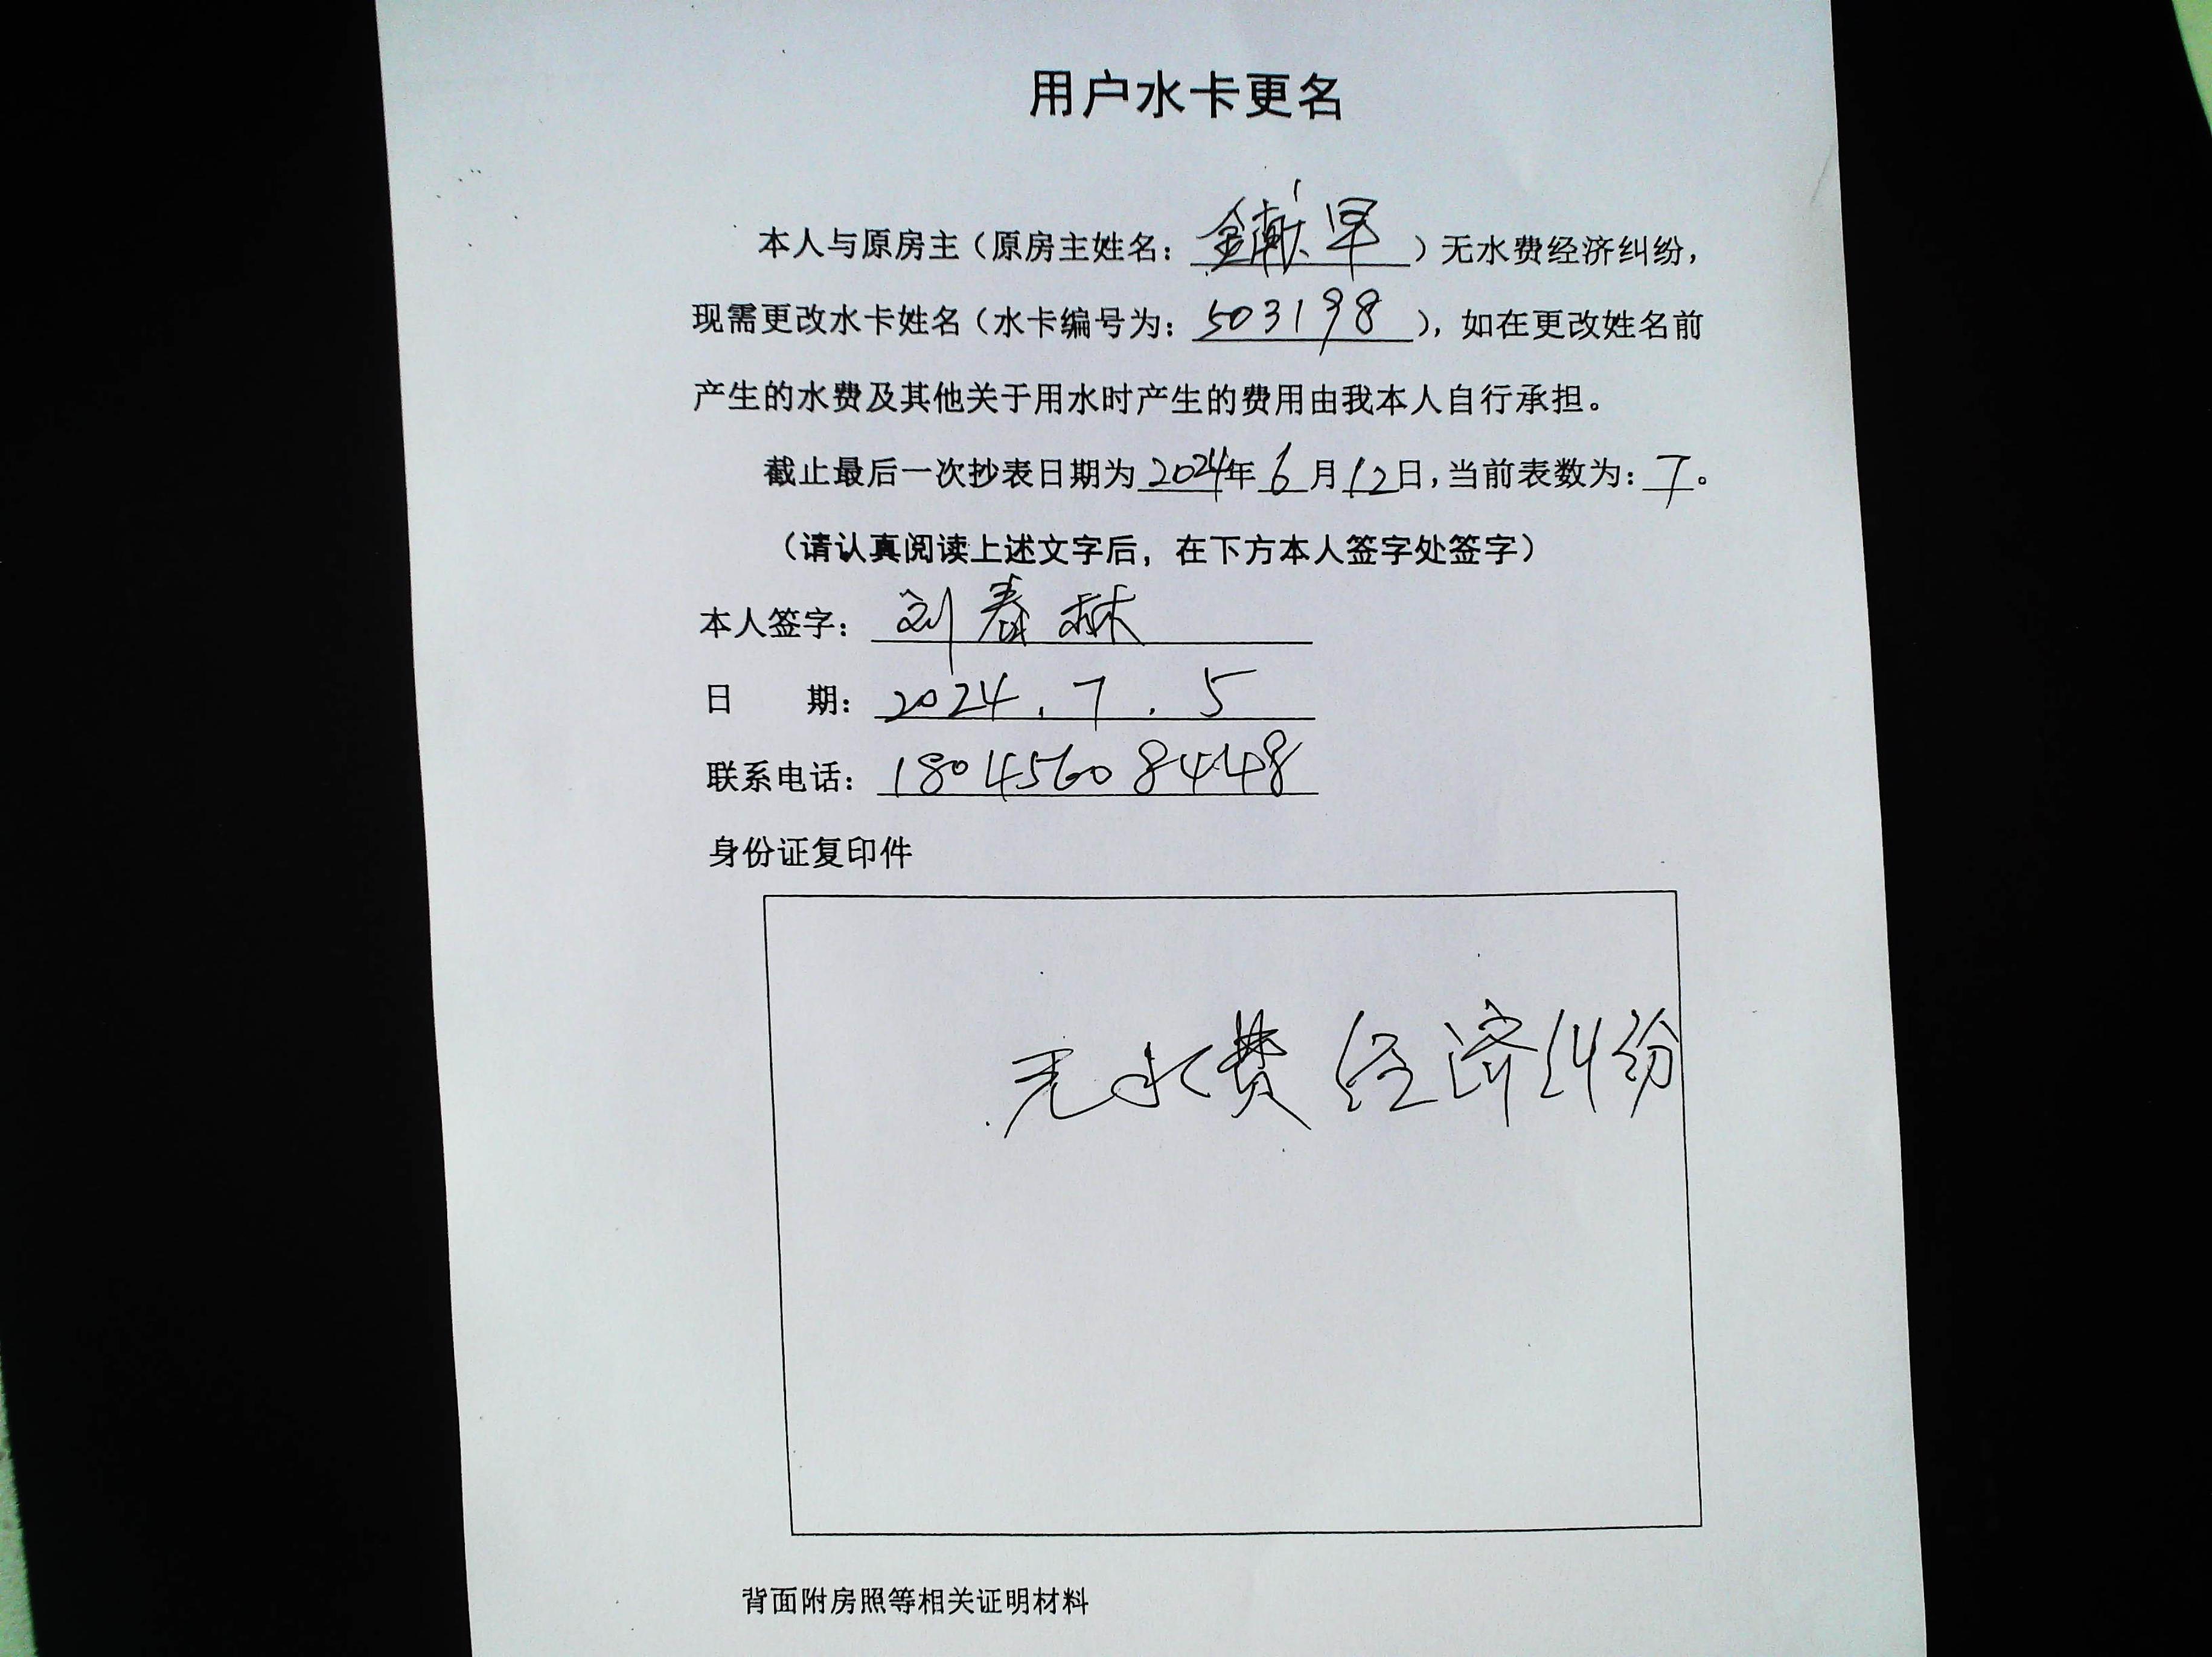 用户水卡更名
本人与原房主（原房主姓名：金献早）无水费经济纠纷，
现需更改水卡姓名（水卡编号为：503198），如在更改姓名前
产生的水费及其他关于用水时产生的费用由我本人自行承担。
截止最后一次抄表日期为2024年6月12日，当前表数为：7。
（请认真阅读上述文字后，在下方本人签字处签字）
本人签字：刘春林
日 期：2024.7.5
联系电话：18045608448
身份证复印件
无水费经济纠份
背面附房照等相关证明材料